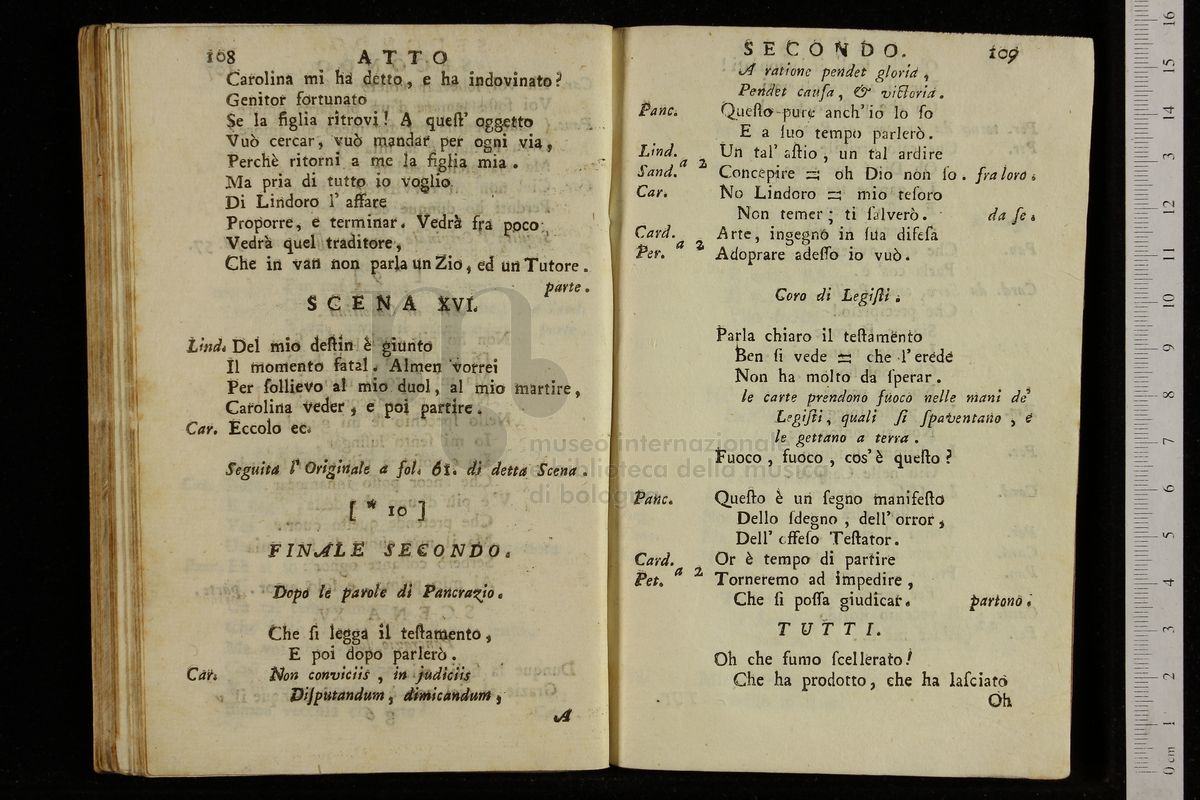 108 ATTO
Carolina mi ha detto, e ha indovinato?
Genitor fortunato
Se la figlia ritrovi! A queſt' oggetto
Vuò cercar, vuò mandar per ogni via,
Perchè ritorni a me la figlia mia.
Ma pria di tutto io voglio
Di Lindoro l' affare
Proporre, e terminar. Vedrà fra poco
Vedrà quel traditore,
Che in van non parla un Zio, ed un Tutore.
parte.
SCENA XVI.
Lind. Del mio deſtin è giunto
Il momento fatal. Almen vorrei
Per ſollievo al mio duol, al mio martire,
Carolina veder, e poi partire.
Car. Eccolo ec.
Seguita l' Originale a fol. 61. di detta Scena.
[ * 10 ]
FINALE SECONDO.
Dopo le parole di Pancrazio.
Che ſi legga il teſtamento,
E poi dopo parlerò.
Car. Non conviciis, in judiciis
Diſputandum, dimicandum,
A
SECONDO. 109
A ratione pendet gloria,
Pendet cauſa, & victoria.
Panc. Queſto pure anch' io lo ſo
E a ſuo tempo parlerò.
Lind. Un tal' aſtio, un tal ardire
Sand. a 2 Concepire = oh Dio non ſo. fra loro.
Car. No Lindoro = mio teſoro
Non temer; ti ſalverò. da ſe.
Card. Arte, ingegno in ſua difeſa
Per. a 2 Adoprare adeſſo io vuò.
Coro di Legiſti.
Parla chiaro il teſtamento
Ben ſi vede = che l' erede
Non ha molto da ſperar.
le carte prendono fuoco nelle mani de'
Legiſti, quali ſi ſpaventano, e
le gettano a terra.
Fuoco, fuoco, cos' è queſto?
Panc. Queſto è un ſegno manifeſto
Dello ſdegno, dell' orror,
Dell' offeſo Teſtator.
Card. Or è tempo di partire
Pet. a 2 Torneremo ad impedire,
Che ſi poſſa giudicar. partono.
TUTTI.
Oh che fumo ſcellerato!
Che ha prodotto, che ha laſciato
Oh
museo internazionale
e biblioteca della musica
di bologna
0 cm 1 2 3 4 5 6 7 8 9 10 11 12 13 14 15 16